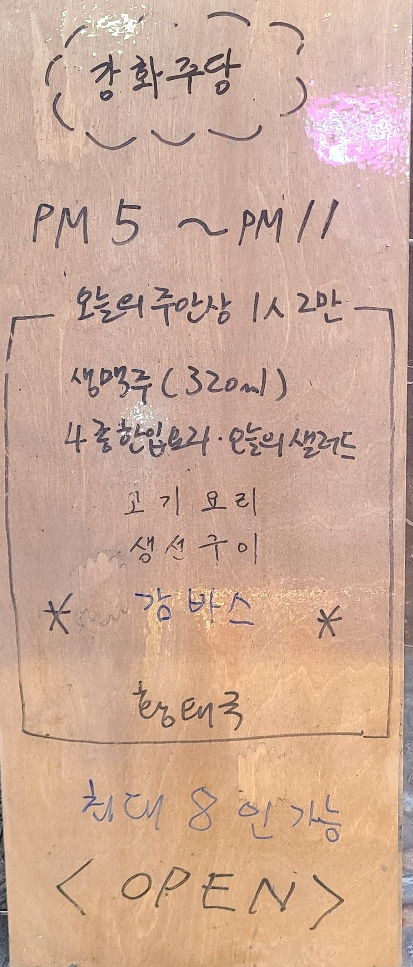 강화주당
PM 5 ~ PM 11
오늘의 주안상 1人 2만
생맥주 (320ml)
4종한입요리·오늘의샐러드
고기요리
생선구이
* 감바스 *
황태국
최대 8인 가능
< OPEN >